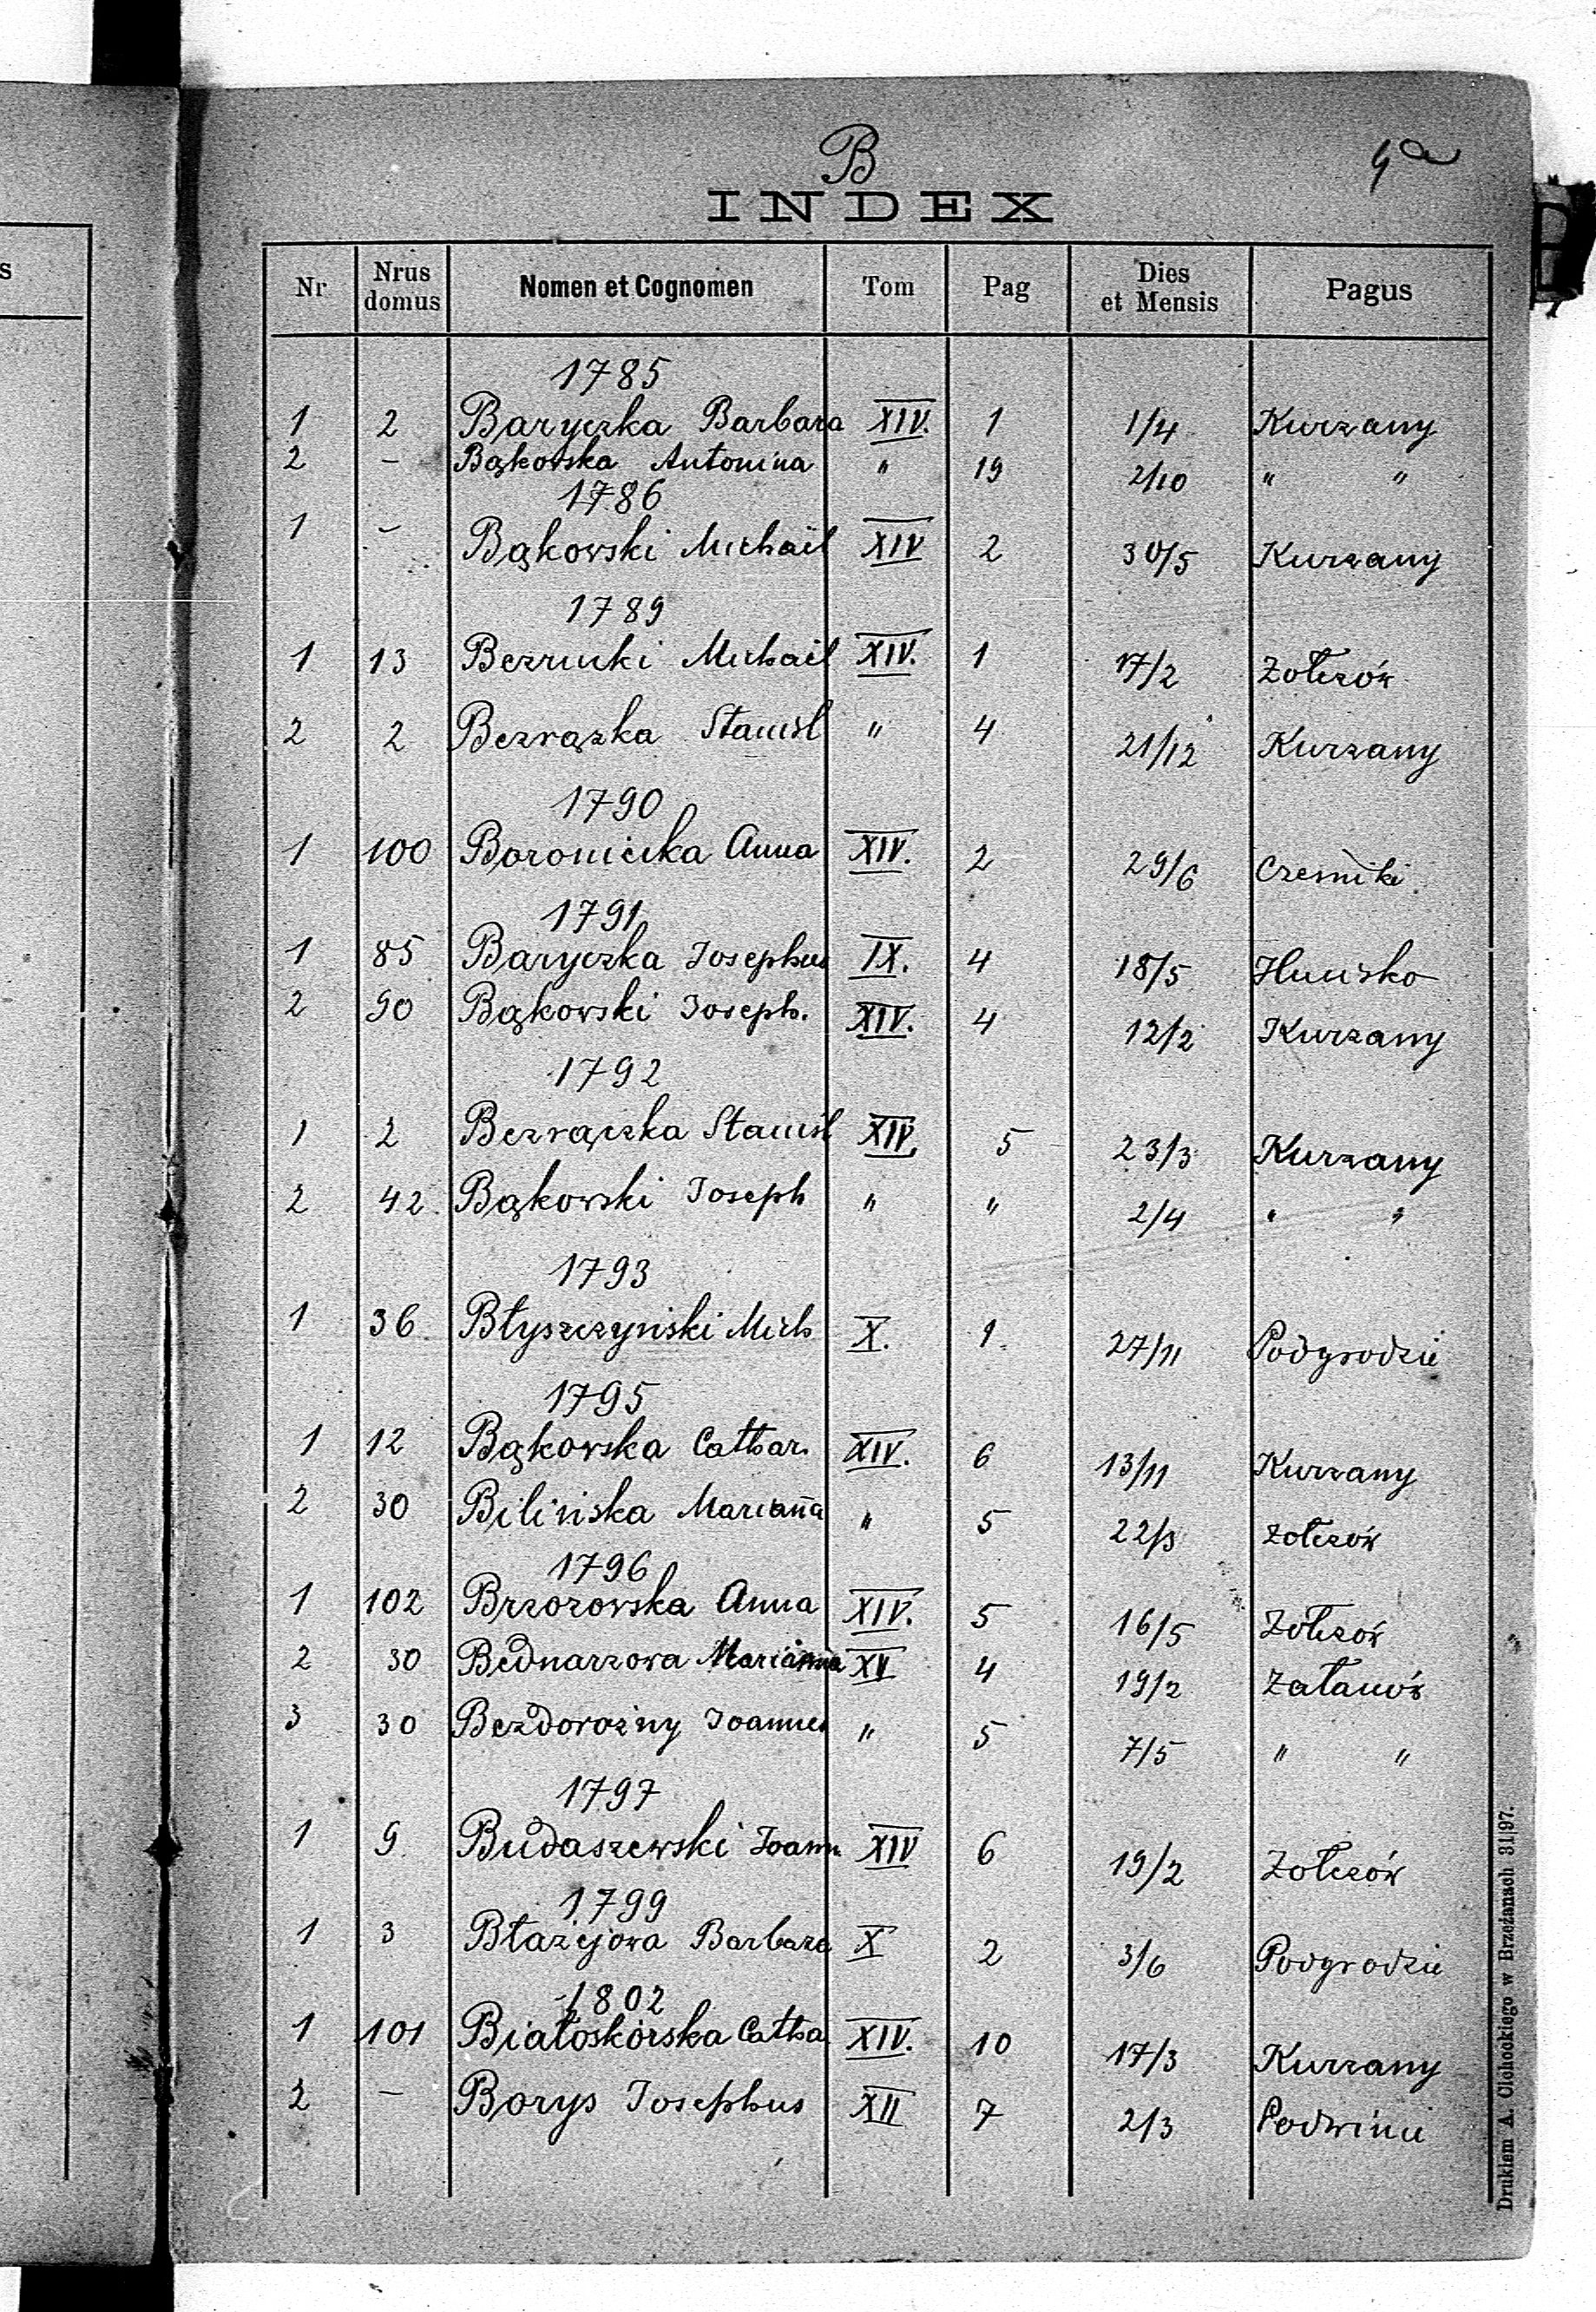 B
4a
INDEX
Nr Nrus domus Nomen et Cognomen Tom Pag Dies et Mensis Pagus
1785
1 2 Baryczka Barbara XIV. 1 1/4 Kurzany
2 – Bąkowska Antonina " 19 2/10 " "
1786
1 – Bąkowski Michaël XIV 2 30/5 Kurzany
1789
1 13 Bezrucki Michaël XIV. 1 17/2 Żołczów
2 2 Bezrączka Stanisł " 4 21/12 Kurzany
1790
1 100 Boroniecka Anna XIV. 2 29/6 Czesniki
1791
1 85 Baryczka Josephus IX. 4 18/5 Hucisko
2 90 Bąkowski Joseph. XIV. 4 12/2 Kurzany
1792
1 2 Bezrączka Stanisł XIV. 5 23/3 Kurzany
2 42 Bąkowski Joseph " " 2/4 " "
1793
1 36 Błyszczyński Mich X. 1. 27/11 Podgrodzie
1795
1 12 Bąkowska Cathar. XIV. 6 13/11 Kurzany
2 30 Bilińska Marianna " 5 22/3 Żołczów
1796
1 102 Brzozowska Anna XIV. 5 16/5 Żołczów
2 30 Bednarzowa Marianna XV 4 19/2 Załanów
3 30 Bezdorożny Joannes " 5 7/5 " "
1797
1 9 Budaszewski Joann XIV 6 19/2 Żołczów
1799
1 3 Błażejowa Barbara X 2 3/6 Podgrodzie
1802
1 101 Białoskórska Catha XIV. 10 17/3 Kurzany
2 – Borys Josephus XII 7 2/3 Podwinie
Drukiem A. Cichockiego w Brzeżanach 31|97.